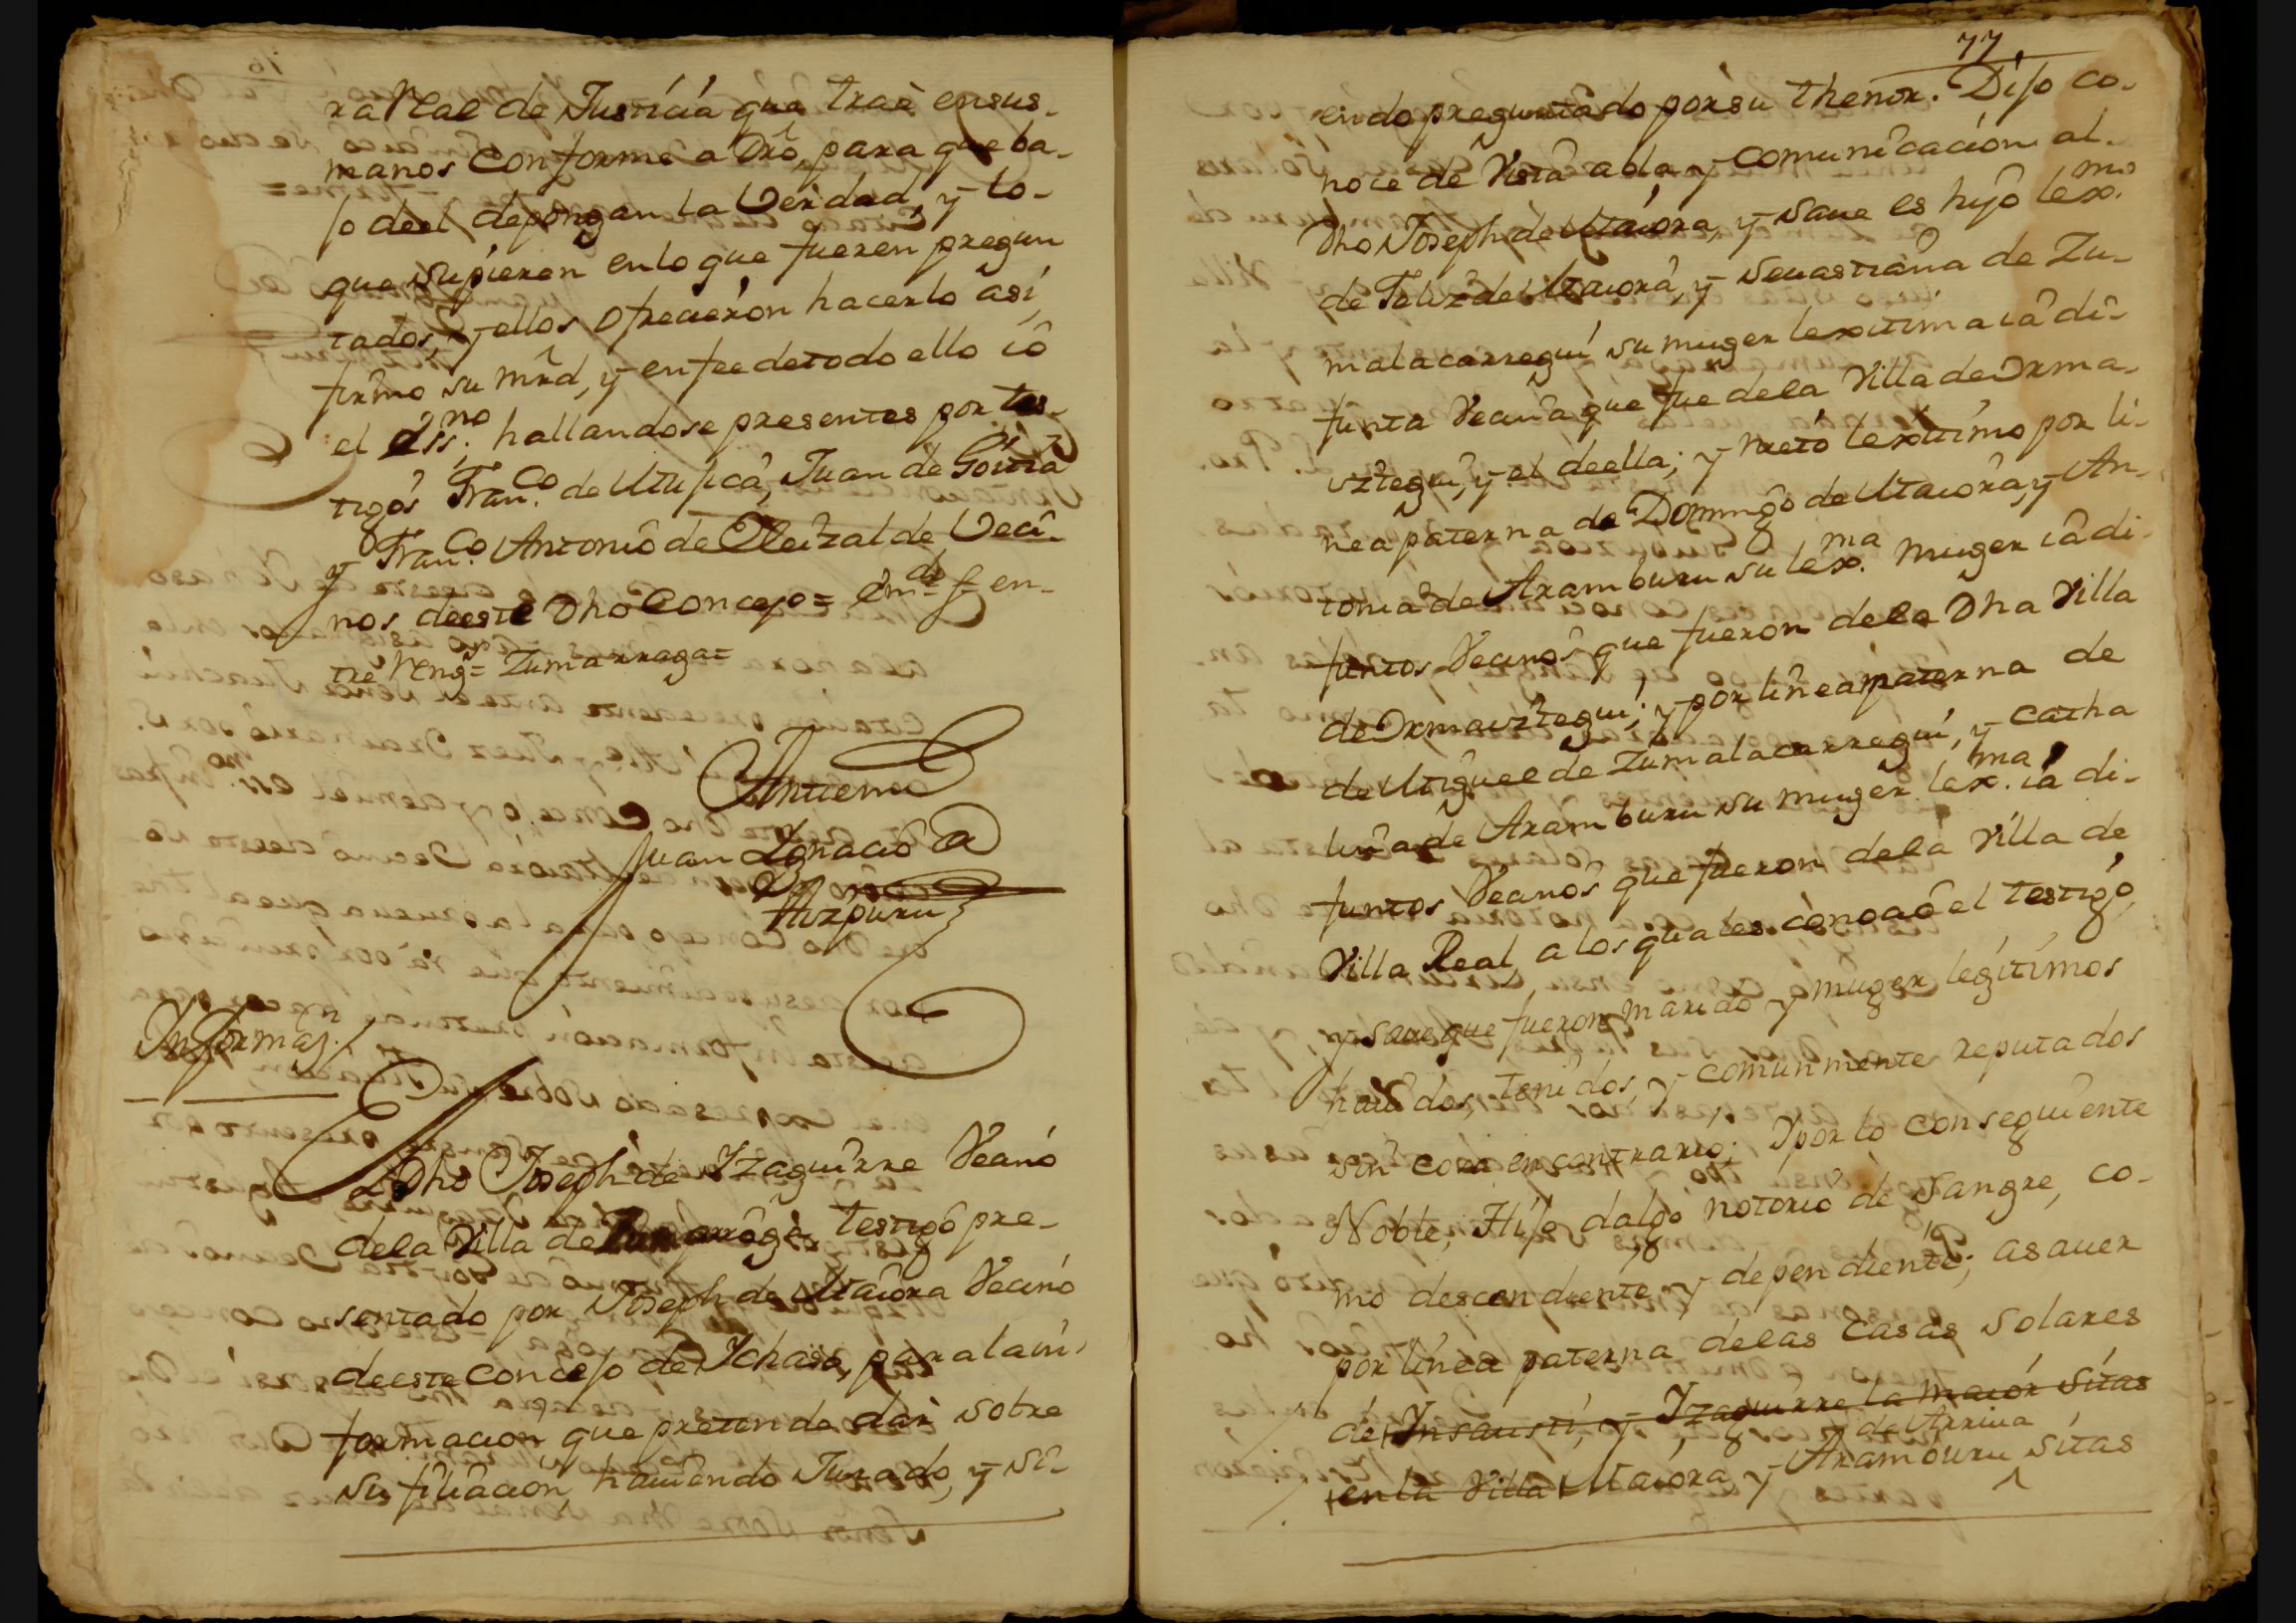 ra Real de Justicia que traè en sus-
manos conforme a dro, para que ba-
jo deel depongan la Verdad, y lo-
que supieren en lo que fueren pregun
tados, y ellos ofrecieron hacerlo asi,
firmo su mrd, y en fee de todo ello io
el ess.no hallandose presentes por tes-
tigos Fran.co de, Juan de Goitia
y Fran.co Antonio de Eleizalde, Veci-
nos deeste dho Concejo= em.do f- en-
tre Reng.s= Zumarraga=
Antemi
Juan Ignacio de
Aizpuru
Informaz.n
El dho Joseph de Yzaguirre Vecino
de la Villa de Zumarraga, testigo pre-
sentado por Joseph de Maiora Vecino
deeste concejo de Ychaso, para la in-
formacion que pretende dar sobre
su filiacion, haviendo Jurado, y si-
77
endo preguntado por su thenor. Dijo co-
noce de Vista abla y comunicacion al-
dho Joseph de Maiora, y save es hijo lex.mo
de Feliz de Maiora, y Sevastiana de Zu-
malacarregui su muger lexitima ia di-
funta Vecina que fue de la Villa de Orma-
iztegui, y el de ella; y nieto lexitimo por li-
nea paterna de Domingo de Maiora, y An-
tonia de Aramburu su lex.ma muger ia di-
funtos Vecinos que fueron de la dha Villa
de Ormaiztegui; y por linea materna de
de Miguel de Zumalacarregui, y Catha
lina de Aramburu su muger lex.ma ia di-
funtos Vecinos que fueron de la Villa de
Villa Real, a los quales conocio el testigo,
y save que fueron marido y muger legitimos
havidos, tenidos, y comunmente reputados
sin cosa en contrario; y por lo consequiente
Noble, Hijo dalgo notorio de Sangre, co-
mo descendiente y dependiente; asaver
por linea paterna de las Casas Solares
de Insausti, y Yzaguirre la maior Sitas
en la Villa Maiora, y Aramburu de Arriva Sitas